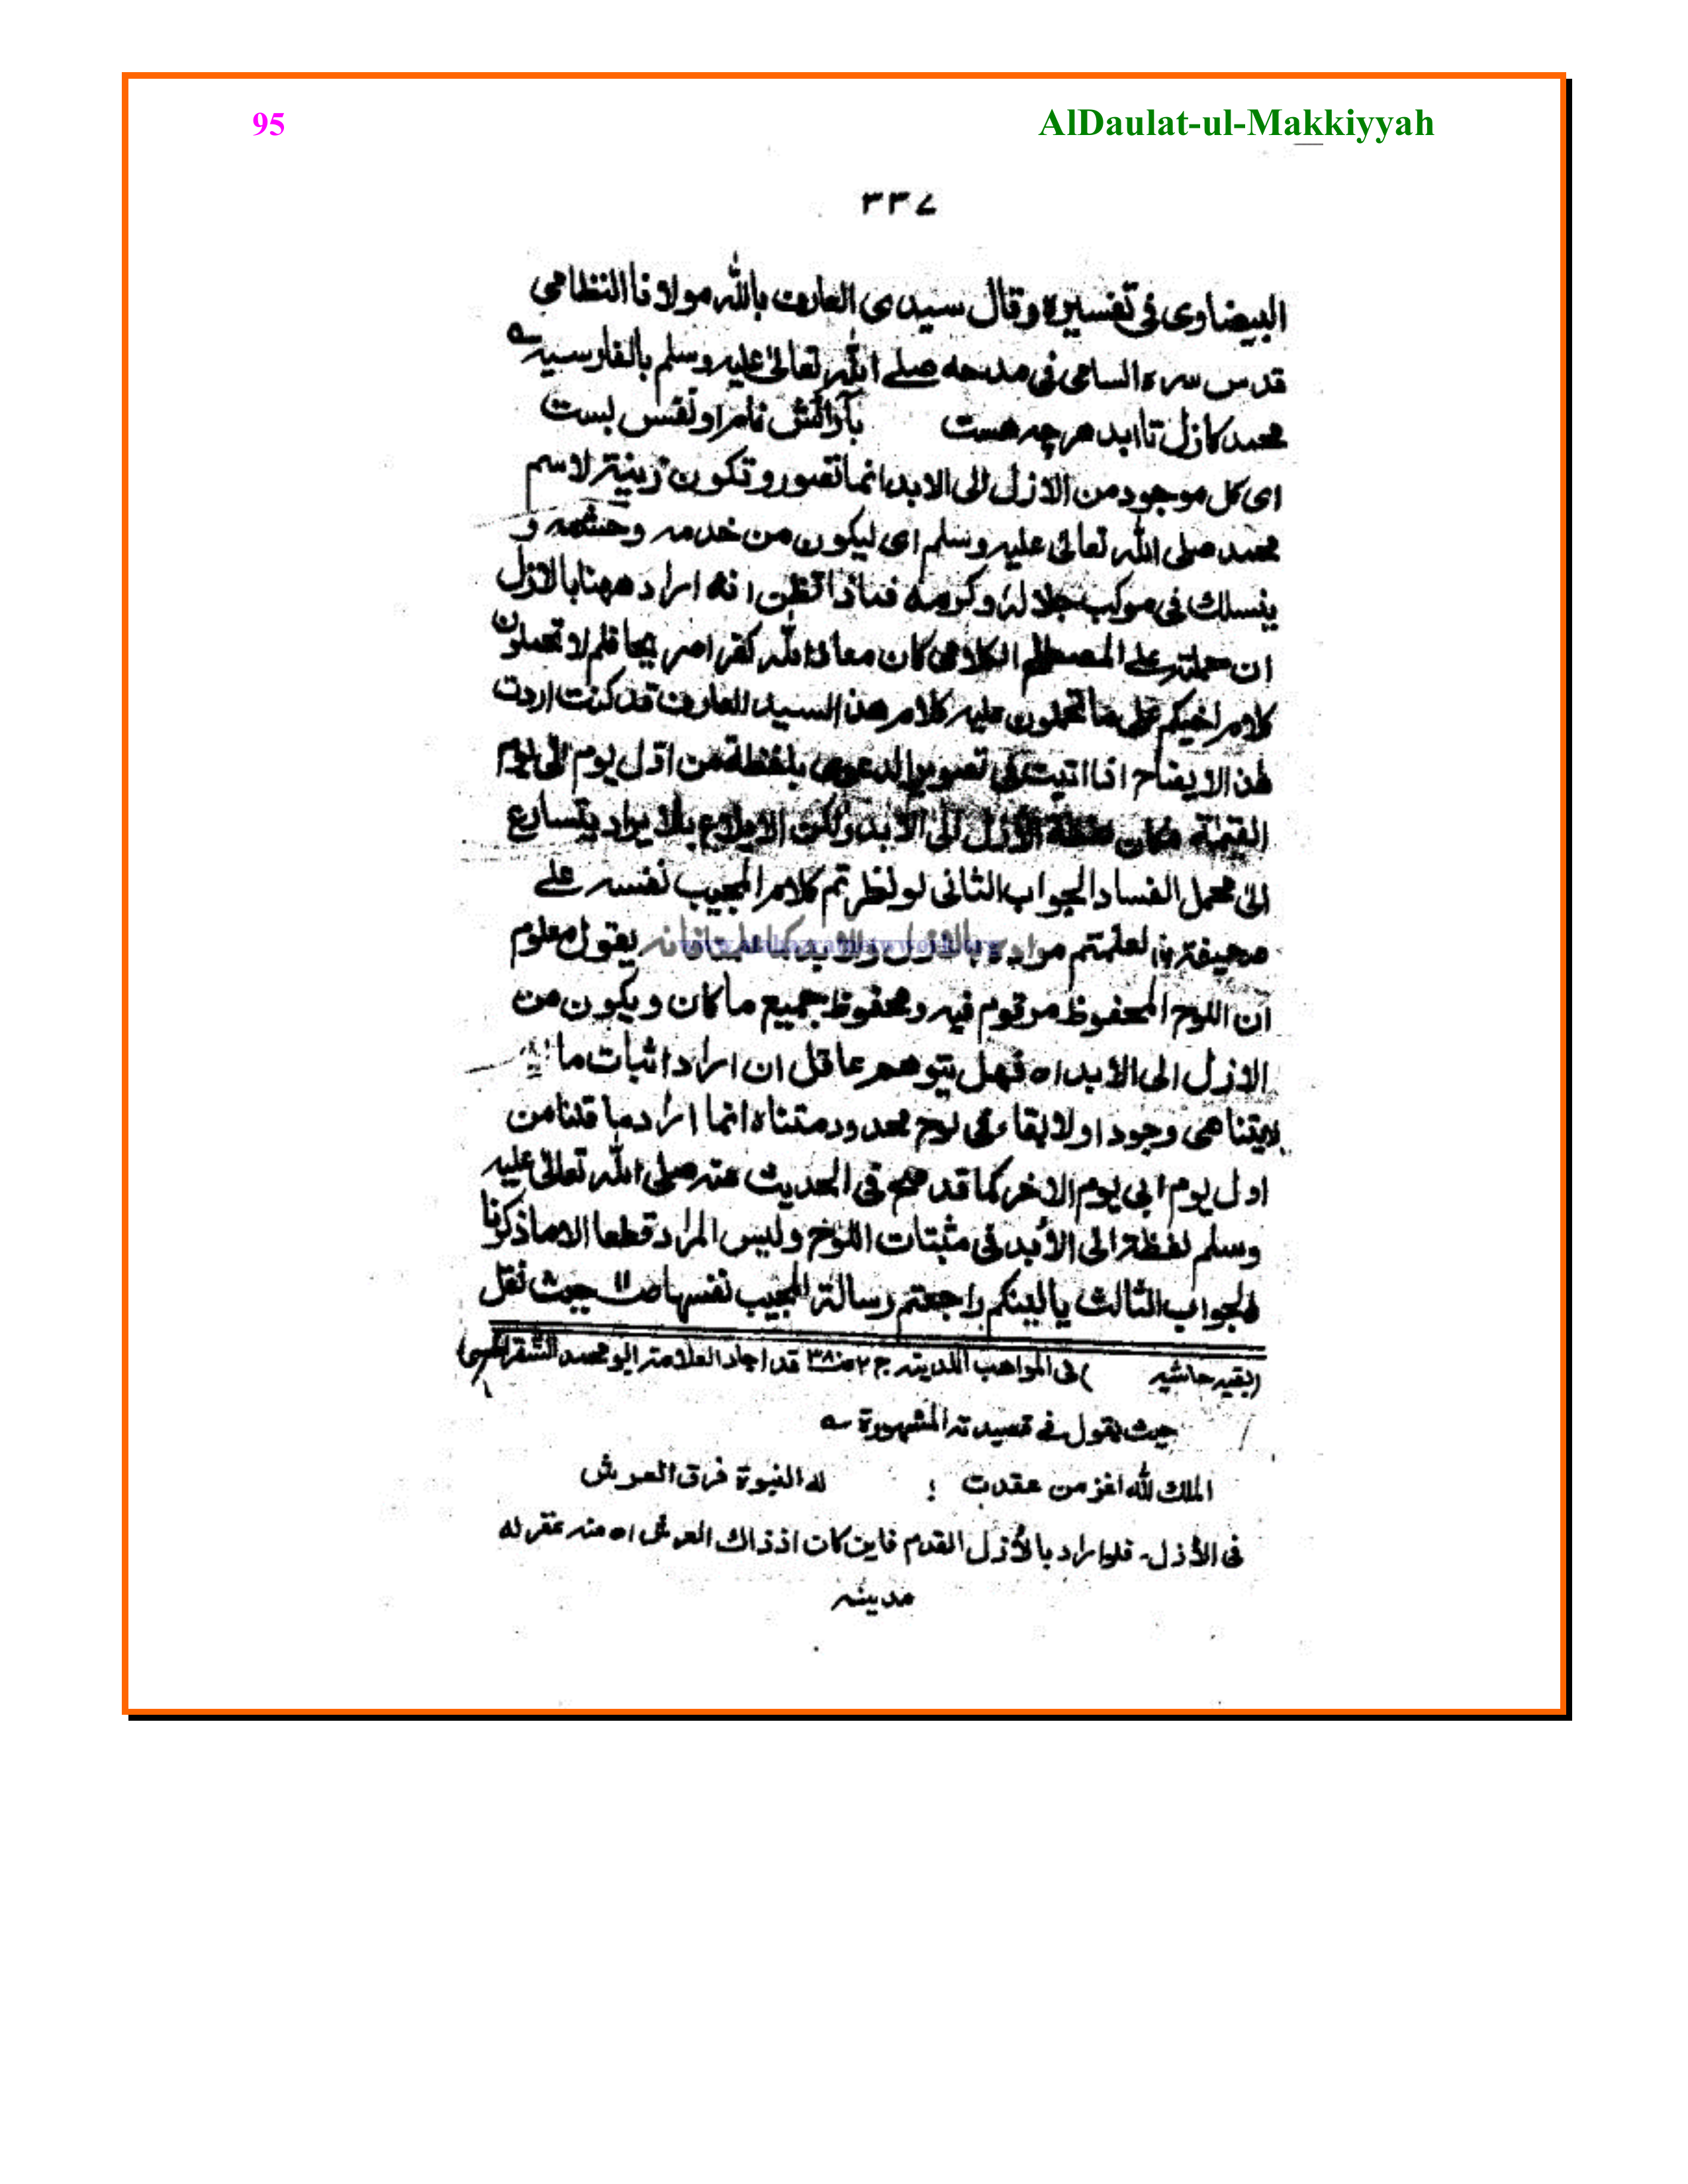 95 AlDaulat-ul-Makkiyyah
٣٣٧
البيضاوى فى تفسيره وقال سيدى العارف بالله مولانا النظامى
قدس سره السامى فى مدحه صلے الله تعالىٰ عليه وسلم بالفارسية ؎
محمد كازل تا ابد هرچه هست بآرائش نام او نقش بست
اى كل موجود من الازل الى الابد انما تصور وتكون زينة لاسم
محمد صلى الله تعالىٰ عليه وسلم اى ليكون من خدمه وحشمه و
ينسلك فى موكب جلاله وكرمه فماذا تظن انه اراد ههنا بالازل
ان حملته على المصطلح الكلامى كان معاذ الله كفرا صريحا فلم لا تحملون
كلام اخيكم على ما تحملون عليه كلام هذا السيد العارف قد كنت اردت
هذا الايضاح اذا اتيت فى تصوير الدعوى بلفظة من اوّل يوم الى يوم
القيٰمة مكان لفظة الازل الى الابد ولكن بلا يراد يتسارع
الىٰ محمل الفساد الجواب الثانى لو نظرتم كلام المجيب نفسه علے
صحيفة لعلمتم مراده بالازل والابد فانه يقول معلوم
ان اللوح المحفوظ مرقوم فيه ومحفوظ جميع ما كان ويكون من
الازل الى الابد اه فهل يتوهم عاقل ان اراد اثبات ما
لايتناهى وجودا ولا بقاء فى لوح محدود متناه انما اراد ما قلنا من
اول يوم الى يوم الاخر كما قد صح فى الحديث عنه صلى الله تعالىٰ عليه
وسلم لفظة الى الأبد فى مثبتات اللوح وليس المراد قطعا الا ما ذكرنا
الجواب الثالث يا ليتكم راجعتم رسالة المجيب نفسها صـ ١١ حيث نقل
(بقيه حاشيه ) فى المواهب اللدنيه ج ٢ صـ ٣٨ قد اجاد العلامة ابو محمد الشقراطسى
حيث يقول فے قصيدته المشهورة ؎
الملك لله اعز من عقدت ؛ له النبوة فوق العرش
فى الأزل۔ فلو اراد بالأزل القدم فاين كان اذ ذاك العرش اه منه غفر له
مدينه